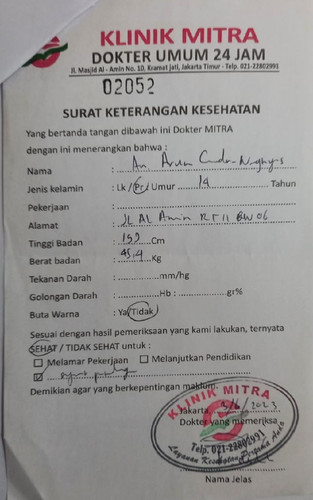 KLINIK MITRA
DOKTER UMUM 24 JAM
Jl. Masjid Al - Amin No. 10, Kramat jati, Jakarta Timur - Telp. 021-22802991
02052
SURAT KETERANGAN KESEHATAN
Yang bertanda tangan dibawah ini Dokter MITRA
dengan ini menerangkan bahwa :
Nama : An
Jenis kelamin : Lk / Pr / Umur 14 Tahun
Pekerjaan :
Alamat : JL AL Amin RT 11 RW 06
Tinggi Badan : 153 Cm
Berat badan : 45,4 Kg
Tekanan Darah : mm/hg
Golongan Darah : Hb : gr%
Buta Warna : Ya/Tidak
Sesuai dengan hasil pemeriksaan yang kami lakukan, ternyata
SEHAT / TIDAK SEHAT untuk :
Melamar Pekerjaan Melanjutkan Pendidikan
Demikian agar yang berkepentingan maklum.
Jakarta 2023
Dokter yang memeriksa
KLINIK MITRA
Telp. 021-22802991
Layanan Kesehatan Anda
Nama Jelas